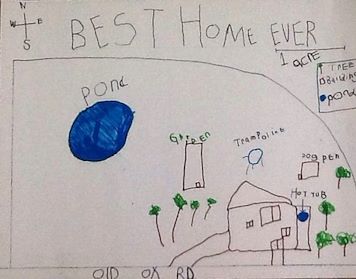 N
S
BEST HOME EVER
1 acre
TREE
Building
POND
POND
GARDEN
Trampoline
DOG PEN
HOT TUB
OLD OX RD